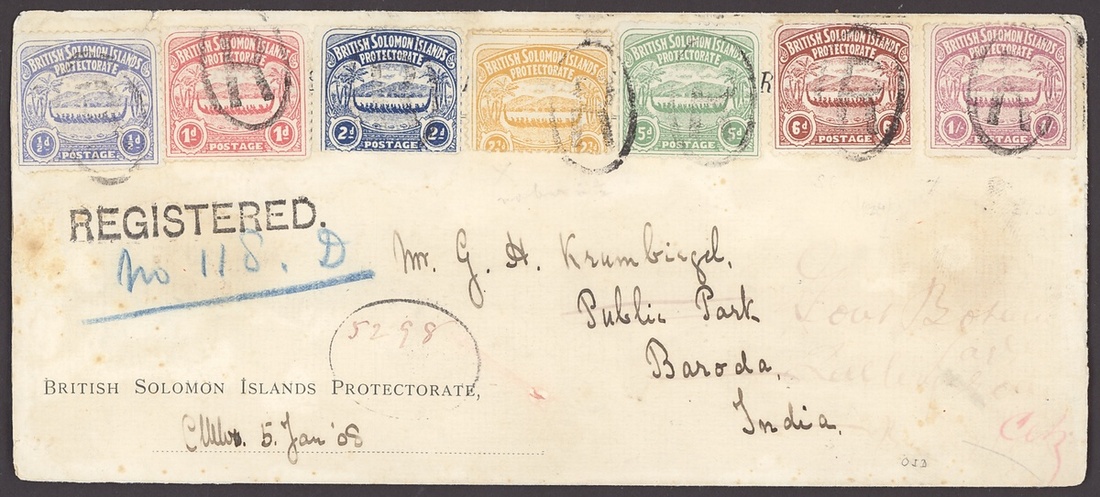 BRITISH SOLOMON ISLANDS
PROTECTORATE
½d ½d
POSTAGE
BRITISH SOLOMON ISLANDS
PROTECTORATE
1d 1d
POSTAGE
BRITISH SOLOMON ISLANDS
PROTECTORATE
2d 2d
POSTAGE
BRITISH SOLOMON ISLANDS
PROTECTORATE
2½d 2½d
POSTAGE
BRITISH SOLOMON ISLANDS
PROTECTORATE
5d 5d
POSTAGE
R
BRITISH SOLOMON ISLANDS
PROTECTORATE
6d 6d
POSTAGE
BRITISH SOLOMON ISLANDS
PROTECTORATE
1/- 1/-
POSTAGE
REGISTERED.
No 118. D
Mr. G. H. Krumbiegel,
Public Park
Baroda,
India,
5298
BRITISH SOLOMON ISLANDS PROTECTORATE,
5 Jan '08